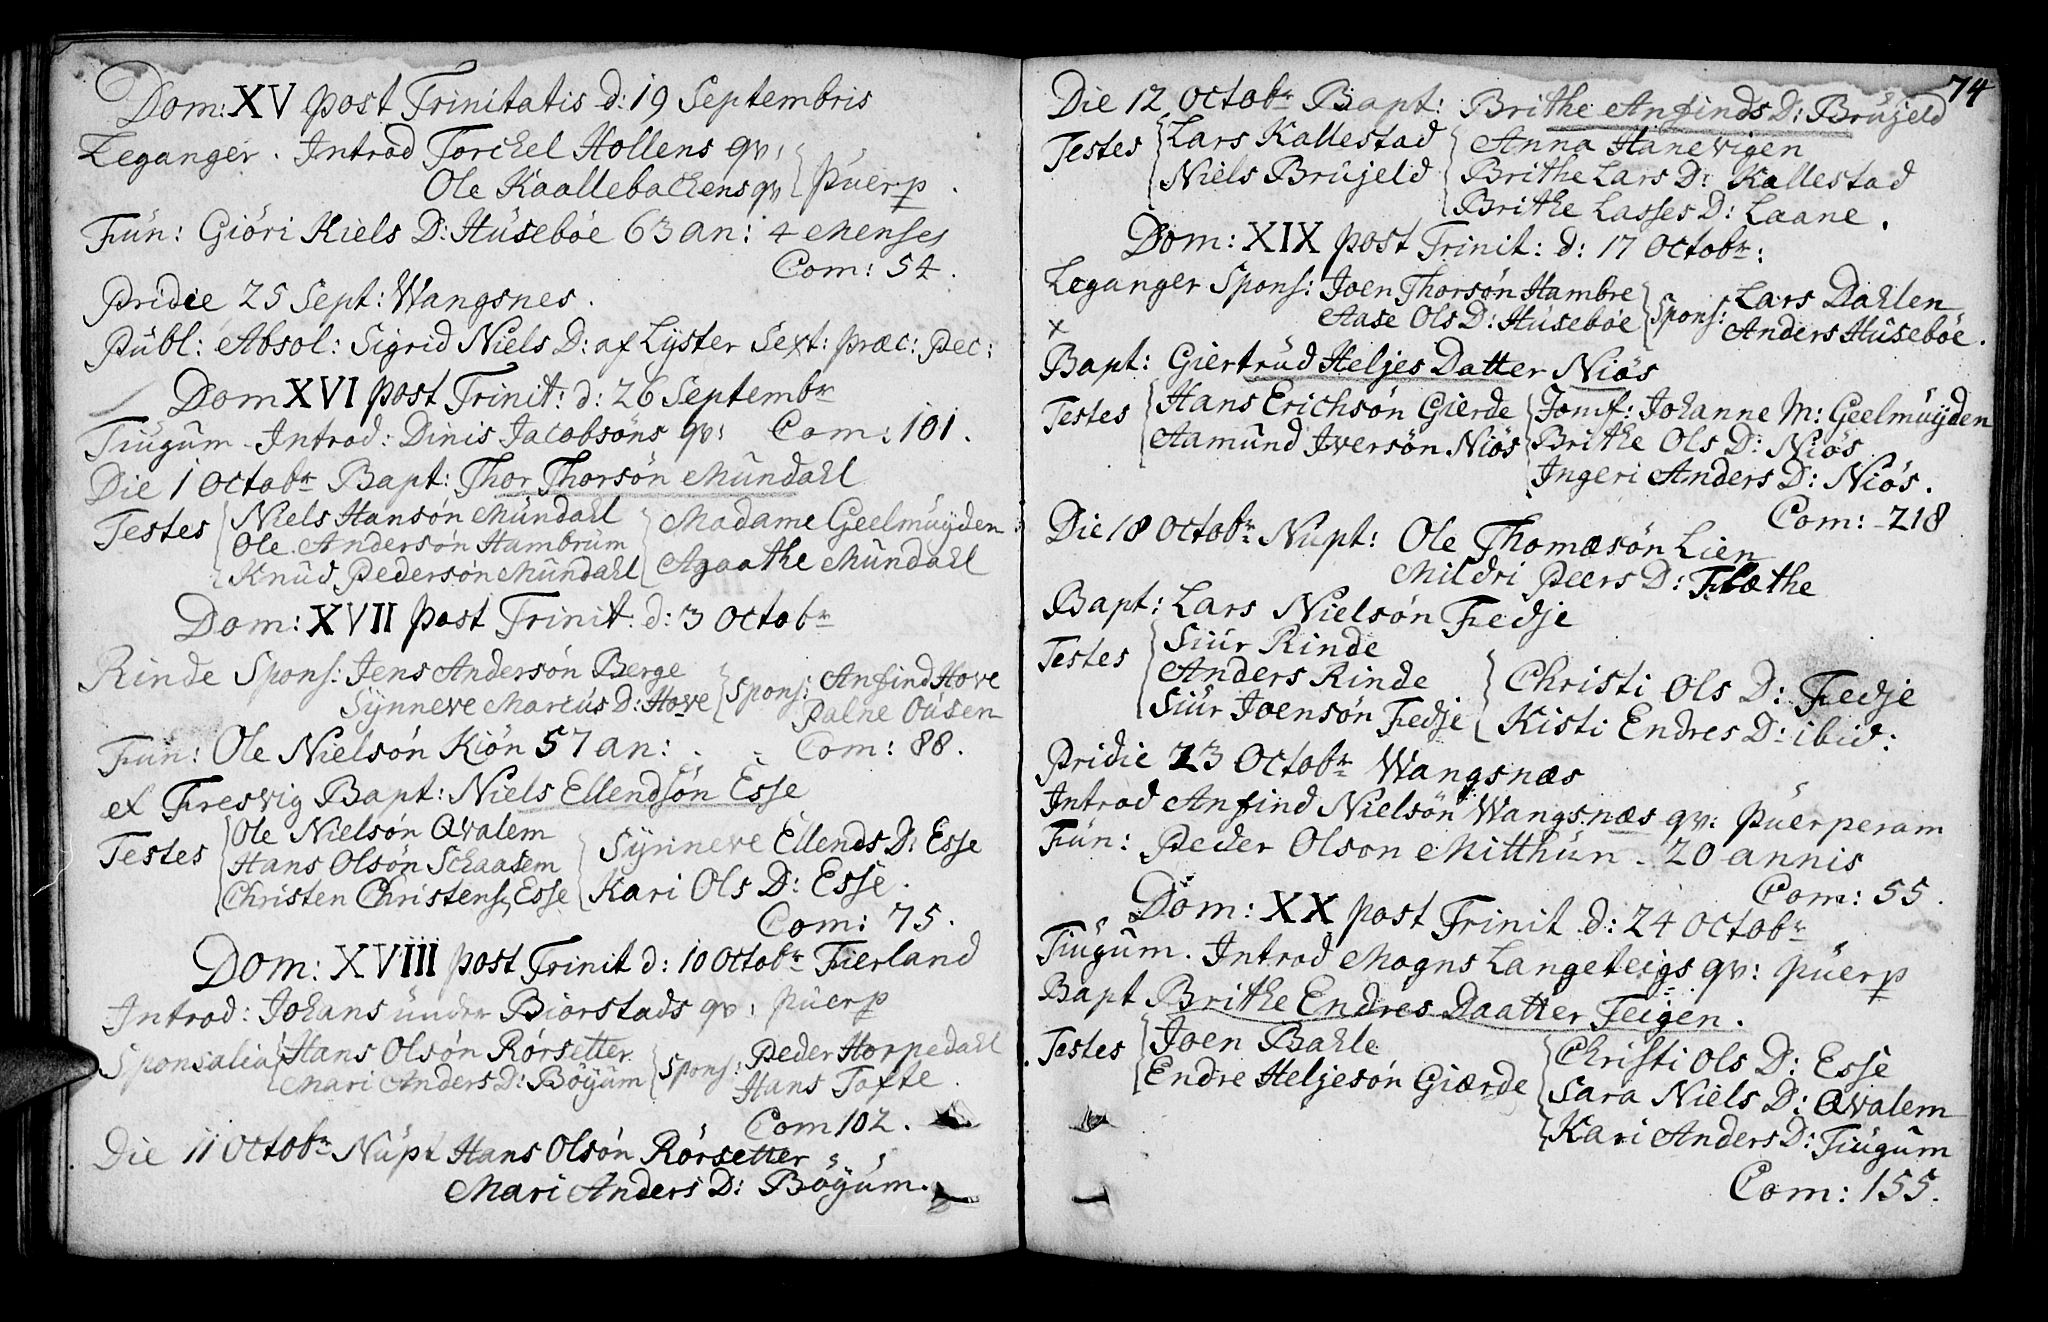 Dom: XV post Trinitatis d: 19 Septembris
Leganger. Introd Torchel Hollens qv:
Ole Kaallebachens qv } Puerp.
Fün: Giöri Kiels D: Hüseböe 63 an: 4 Menses
Com: 54.
Pridie 25 Sept: Wangsnes.
Pübl: Absol: Sigrid Niels D: af Lÿster Sext: præc: Pec:
Dom XVI post Trinit: d: 26 Septembr
Tiugum - Introd: Dinis Jacobsöns qv: Com: 101.
Die 1 Octobr Bapt: Thor Thorsön Mündahl
Testes { Niels Hansön Mündahl { Madame Geelmuÿden
Ole Andersön Hambrüm
Knüd Pedersön Mündahl { Agaathe Mündahl
Dom: XVII post Trinit: d: 3 Octobr
Rinde Spons: Jens Andersön Berge { Spons: Anfind Hove
Sÿnneve Marcüs D: Hove Palne Ousen
Fün: Ole Nielsön Kiön 57 an: Com: 88.
ex Fresvig Bapt: Niels Ellendsön Esse
Testes { Ole Nielsön Qvalem { Sÿnneve Ellends D: Esse
Hans Olsön Schaasem
Christen Christens: Esse { Kari Ols D: Esse.
Com: 75.
Dom: XVIII post Trinit d: 10 Octobr Fierland
Introd: Johans ünder Biorstads qv: püerp
Sponsalia { Hans Olsön Rörsetter { Spons: Peder Horpedahl
Mari Anders D: Böÿum Hans Tofte.
Com 102.
Die 11 Octobr Nüpt Hans Olsön Rörsetter
Mari Anders D: Böÿum.
74
Die 12 Octobr Bapt: Brithe Anfinds D: Brüjeld
Testes { Lars Kallestad { Anna Hanevigen
Niels Brüjeld { Brithe Lars D: Kallestad
Brithe Lasses D: Laane.
Dom: XIX post Trinit: d: 17 Octobr:
Leganger Spons: Joen Thorsön Hambre { Spons: Lars Dahlen
x Aase Ols D: Hüseböe Anders Hüseböe.
Bapt: Giertrüd Heljes Datter Niös
Testes { Hans Erichsön Gierde { Jomf: Johanne M: Geelmuÿden
Aamünd Iversön Niös { Brithe Ols D: Niös
Ingeri Anders D: Niös.
Com: 218
Die 18 Octobr Nüpt: Ole Thomæsön Lien
Mildri Peers D: Flæthe
Bapt: Lars Nielsön Fedje
Testes { Siür Rinde
Anders Rinde { Christi Ols D: Fedje
Siür Joensön Fedje { Kisti Endres D: ibid:
Pridie 23 Octobr Wangsnæs
Introd Anfind Nielsön Wangsnæs qv: püerperam
Fün: Peder Olson Mitthün - 20 annis
Com: 55.
Dom: XX post Trinit d: 24 Octobr
Tiügüm. Introd Mogns Langeteigs qv: püerp
Bapt Brithe Endres Daatter Feigen.
Testes { Joen Bahle { Christi Ols D: Esse
Endre Heljesön Giærde { Sara Niels D: Qvalem
Kari Anders D: Tiügüm
Com: 155.